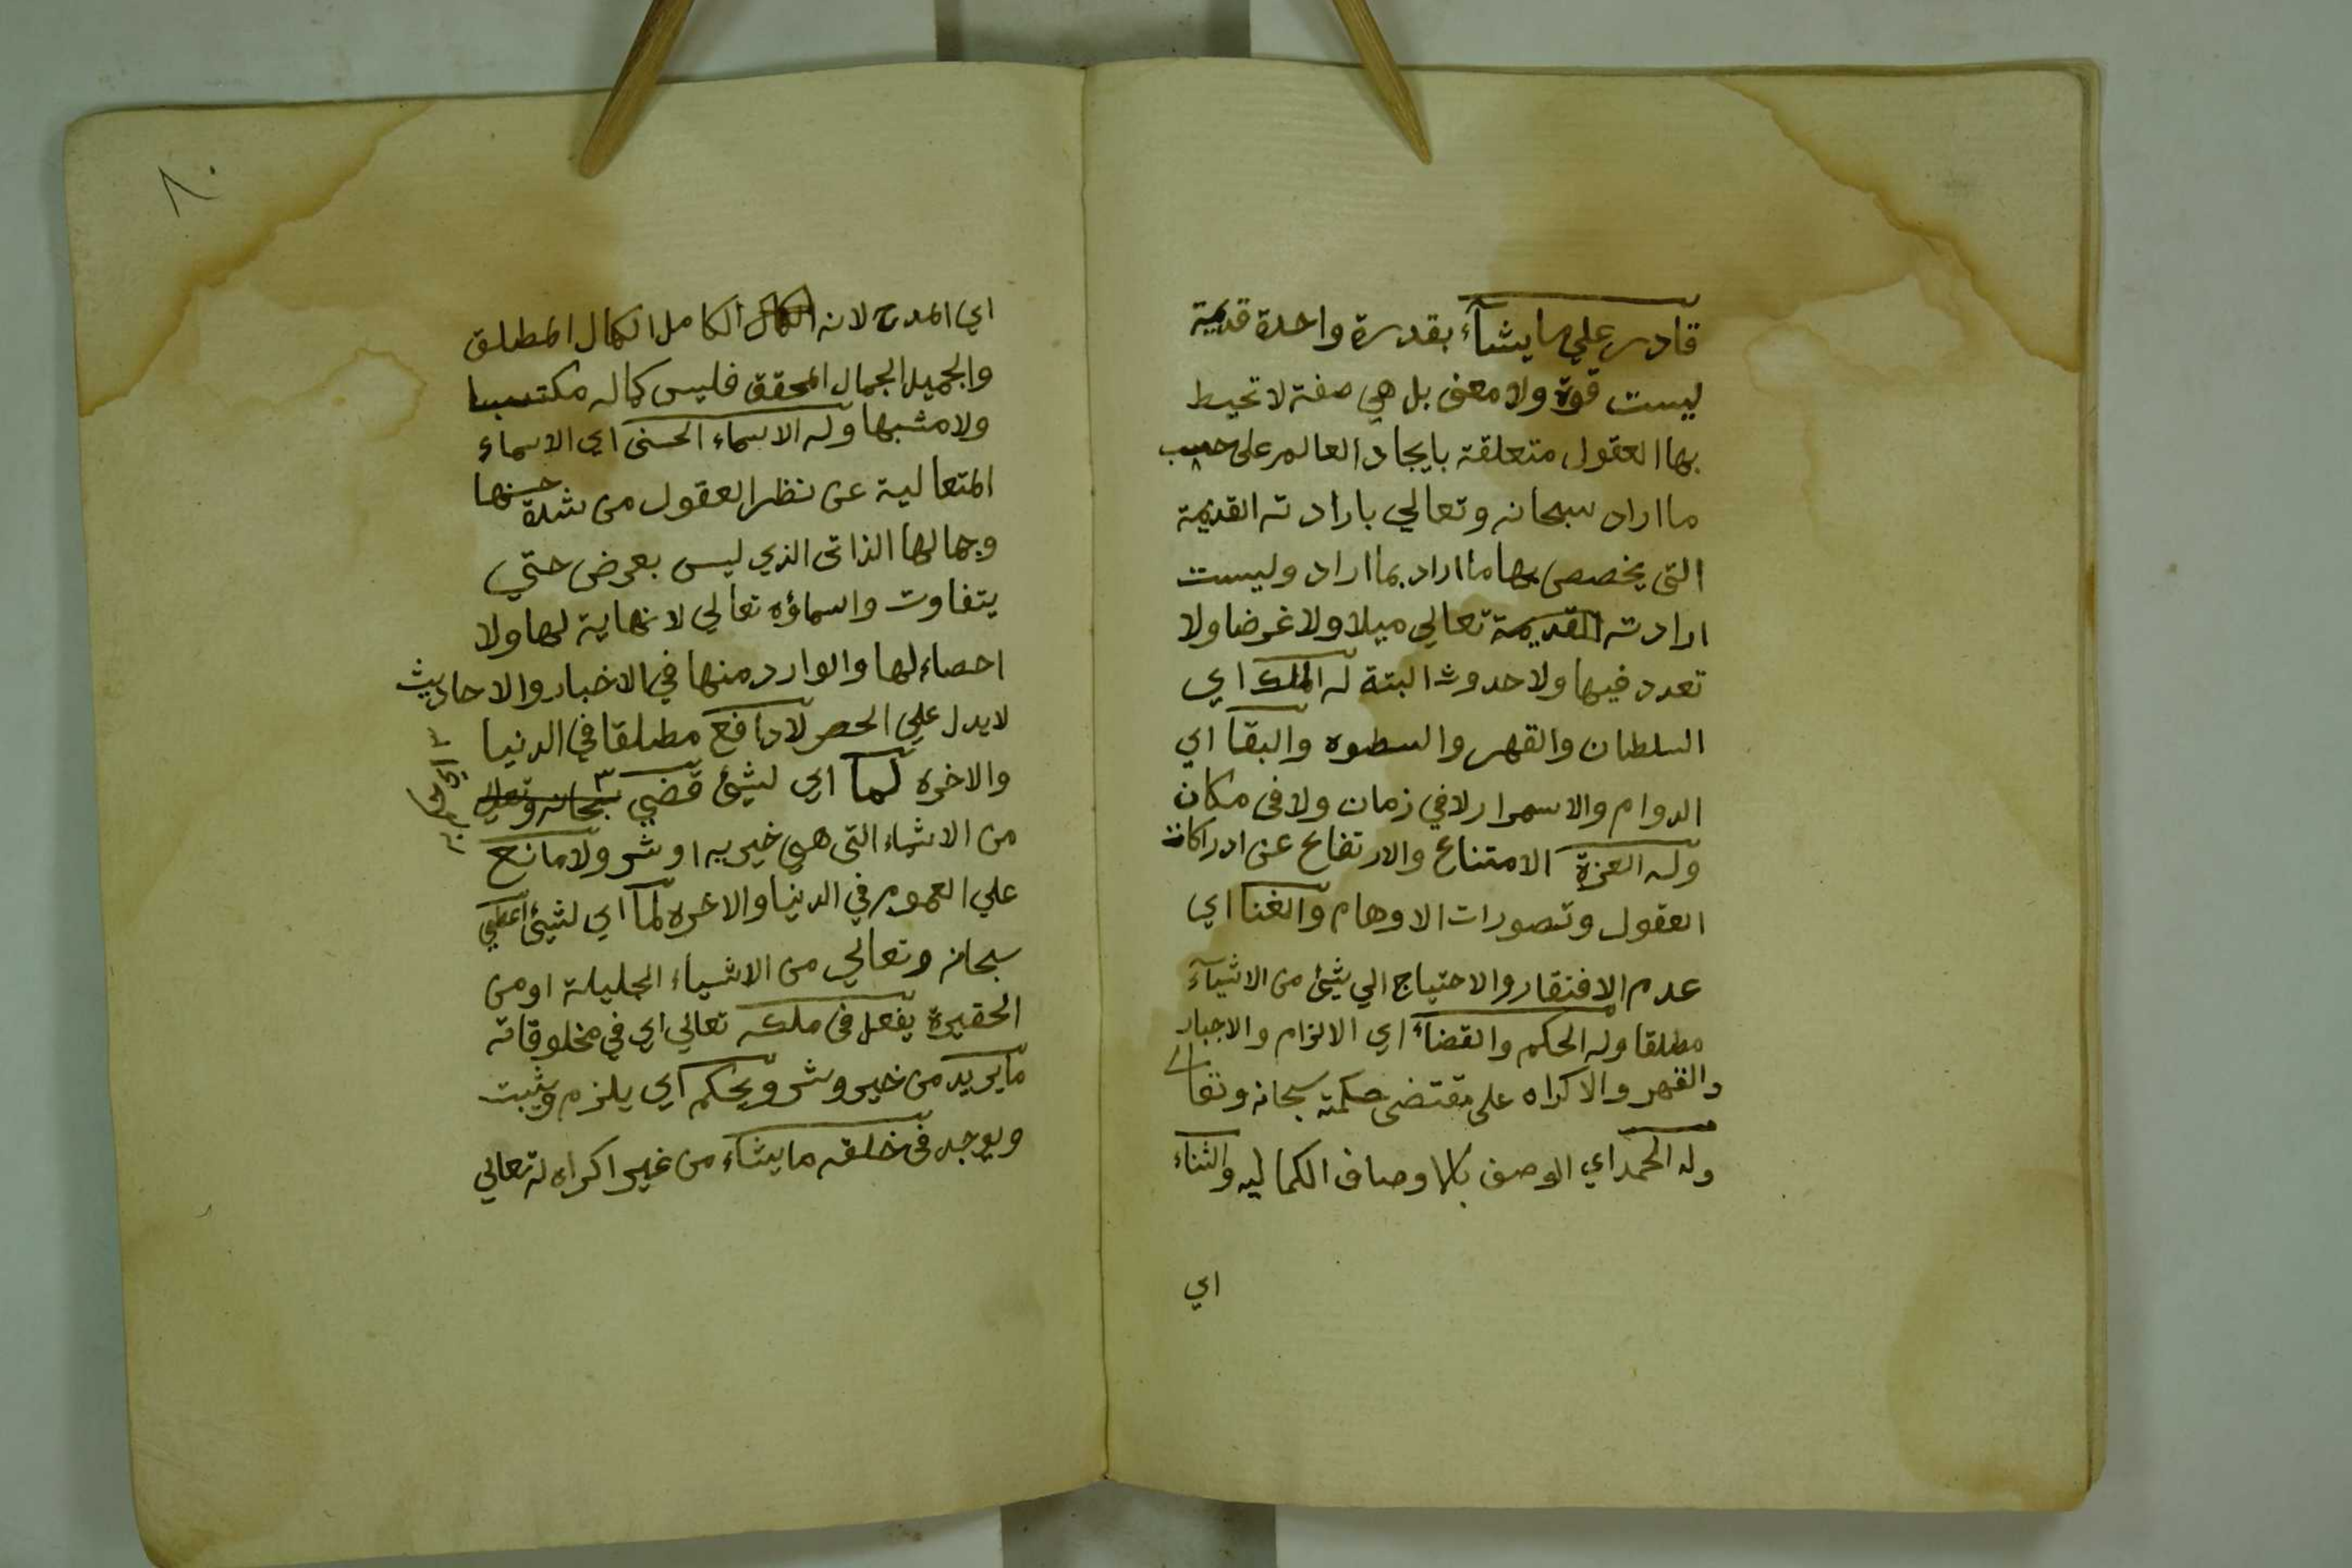 قادر علي ما يشآء بقدرة واحدة قديمة
ليست قوة ولا معنى بل هي صفة لا تحيط
بها العقول متعلقة بايجاد العالم على حسب
ما اراد سبحانه وتعالي بارادته القديمة
التى يخصص بها ما اراد بما اراد وليست
ارادته القديمة تعالي ميلا ولا غرضا ولا
تعدد فيها ولا حدوث البتة له الملك اي
السلطان والقهر والسطوه والبقآ اي
الدوام والاسمرار لا في زمان ولا فى مكان
وله العزة الامتناع والارتفاع عن ادراكات
العقول وتصورات الاوهام والغنا اي
عدم الافتقار والاحتياج الي شئ من الاشيآء
مطلقا وله الحكم والقضآء اي الالزام والاجبار
والقهر والاكراه على مقتضى حكمته سبحانه وتعالى
وله الحمد اي الوصف بالاوصاف الكماليه والثناء
اي
٨٠
اي المدح لانه الكمال الكامل الكمال المطلق
والجميل الجمال المحقق فليس كماله مكتسبا
ولا مشبها وله الاسماء الحسنى اي الاسماء
المتعالية عن نظر العقول من شدة حسنها
وجمالها الذاتى الذي ليس بعرض حتي
يتفاوت واسماؤه تعالي لا نهاية لها ولا
احصاء لها والوارد منها في الاخبار والاحاديث
لا يدل علي الحصر لا دافع مطلقا في الدنيا
والاخره لمآ اي لشئ قضي سبحانه وتعالي
من الاشياء التى هي خير به او شر ولا مانع
علي العموم في الدنيا والاخره لمآ اي لشئ اعطي
سبحانه وتعالي من الاشياء الجليلة او من
الحقيرة يفعل فى ملكه تعالي اي في مخلوقاته
ما يريد من خير وشر ويحكم اي يلزم ويثبت
ويوجد فى خلقه ما يشآء من غير اكراه له تعالي